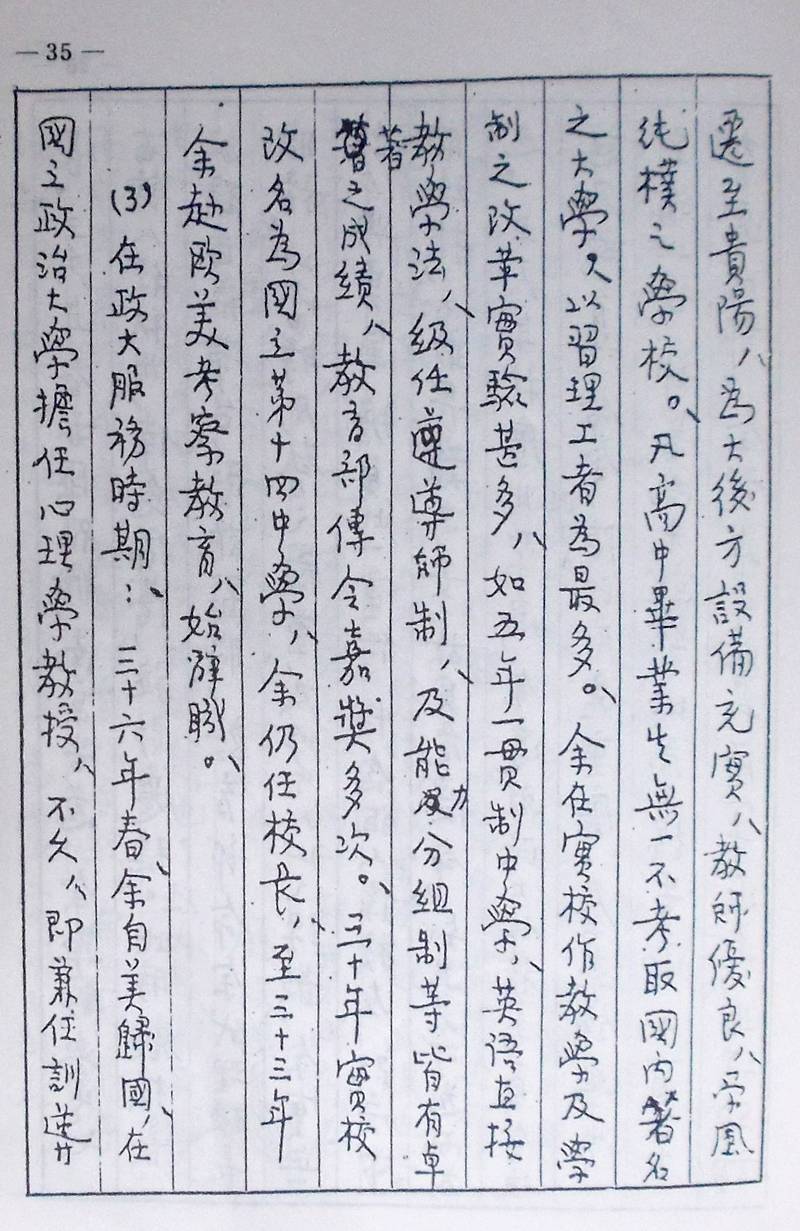 — 35 —
遷至貴陽，為大後方設備充實，教師優良，學風
純樸之學校。凡高中畢業生無一不考取國內著名
之大學，以習理工者為最多。余在實校作教學及學
制之改革實驗甚多，如五年一貫制中學，英語直接
教學法，級任導師制，及能力分組制等皆有卓
著之成績，教育部傳令嘉獎多次。三十年實校
改名為國立第十四中學，余仍任校長，至三十三年
余赴歐美考察教育，始辭職。
(3)在政大服務時期：三十六年春，余自美歸國，在
國立政治大學擔任心理學教授，不久，即兼任訓導